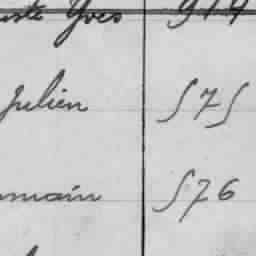 Yves 979
Julien 575
main 576